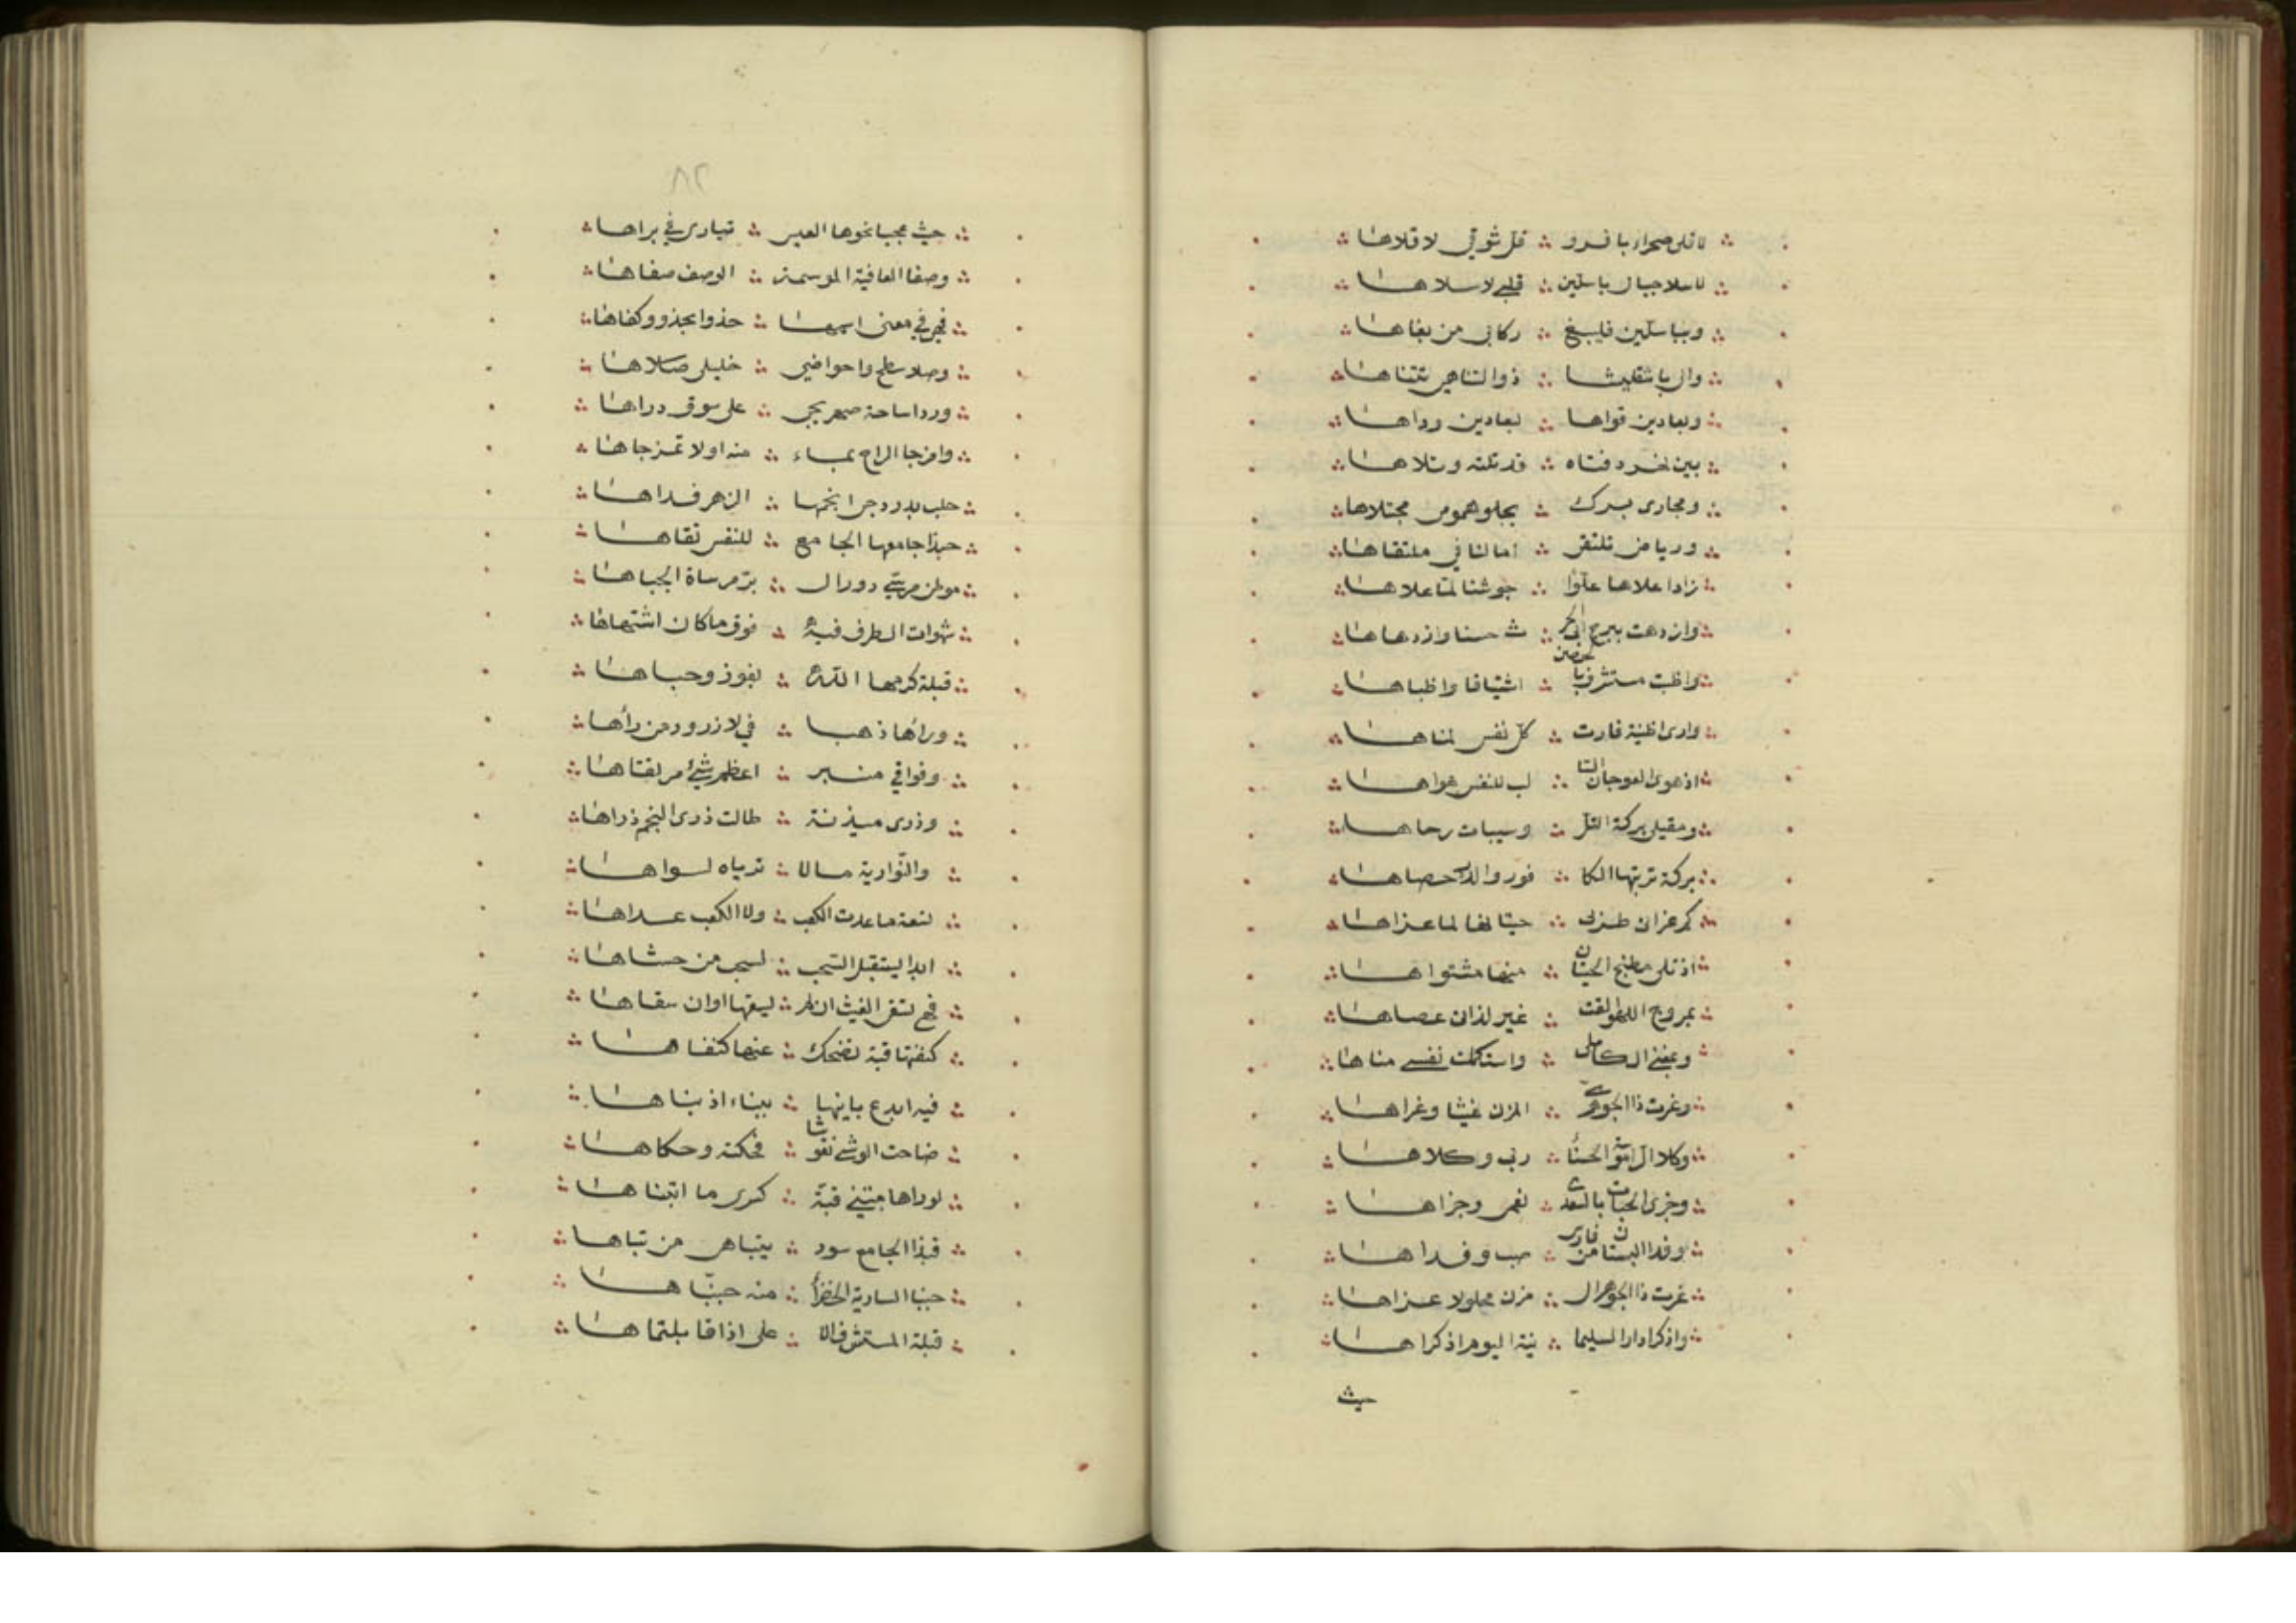 لا قلى صحراء با فرو ∴ قل شوقى لا قلاها
لا سلا جبال باسلين ∴ قلبي لا سلاها
وبباسلين فليبغ ∴ ركابي من بغاها
والى باشقليشا ∴ ذو التناهي يتناها
وبعاذين فواها ∴ لبعاذين وواها
بين نهر وقناه ∴ قد تلته وتلاها
ومجارى برك ∴ يجلو همومى مجتلاها
ورياض تلتقى ∴ امالنا في ملتقاها
زادا علاها علوا ∴ جوشنا لما علاها
وازدهت ببرج ابى الحر ∴ ث حسنا وازدهاها
واطبت مستشرف الحصن ∴ اشتياقا واطباها
وارى المنية فازت ∴ كل نفس لمناها
اذ هوى العوجان السا ∴ لب للنفس هواها
ومقيلى بركة التل ∴ وسيبات رحاها
بركة تربتها الكا ∴ فور والدر حصاها
كم غزانى طربى ∴ حيتانها لما غزاها
اذ تلى مطبخ الحيتان ∴ منها مشتواها
بمروج اللهو القت ∴ غير لذاتى عصاها
وبمغنى الكاملى ∴ واستكملت نفسي مناها
وغرت ذا الجوهري ∴ المزن غيثا وغراها
وكلا الراموسة الحسنا ∴ ربى وكلاها
وجزى الجنات بالسعدى ∴ نعمى وجزاها
وفدا البستان من فارس ∴ صب وفداها
غرت ذا الجوهرى ال ∴ مزن محلولا عزاها
واذكرا دار السليما ∴ نية اليوم اذكراها
حيث
٨٢
حيث عجبا نحوها العيس ∴ تبارى في براها
وصفا العافية الموسمة ∴ الوصف صفاها
فهي في معنى اسمها ∴ حذوا بحذو وكفاها
وصلا سطحى واحواضى ∴ خليلى صلاها
وردا ساحة صهريجى ∴ على سوق رداها
وامزجا الراح بماء ∴ منه اولا تمزجاها
حلب بدر دجى انجمها ∴ الزهر فداها
حبذا جامعها الجامع ∴ للنفس تقاها
موطن مرسى ذوو ال ∴ بر مرساة الحباها
شهوات الطرف فيه ∴ فوق ما كان اشتهاها
قبلة كرمها الله ∴ بفوز وحباها
وراها ذهبا ∴ في لازرود من رآها
ومراقي منبر ∴ اعظم شئ مرتقاها
وذرى ميذنة ∴ طالت ذرى النجم ذراها
والنوارية مالا ∴ ترياه لسواها
لنعته ما عدت الكعب ∴ ولا الكعب عداها
ابدا يستقبل السحب ∴ لسحب من حشاها
فهي تسقى الغيث ان لم ∴ يسقها اوان سقاها
كنفتها قبة تضحك ∴ عنها كنفاها
فيه ابدع بانيها ∴ ببناء اذ بناها
ضاهت الوشى نقوشا ∴ فحكته وحكاها
لو رآها مبتني قبة ∴ كسرى ما ابتناها
فبذا الجامع سود ∴ يتباهى من تباها
حييا السارية الخضراء ∴ منه حيياها
قبلة المستشرف الا ∴ على اذا قابلتماها